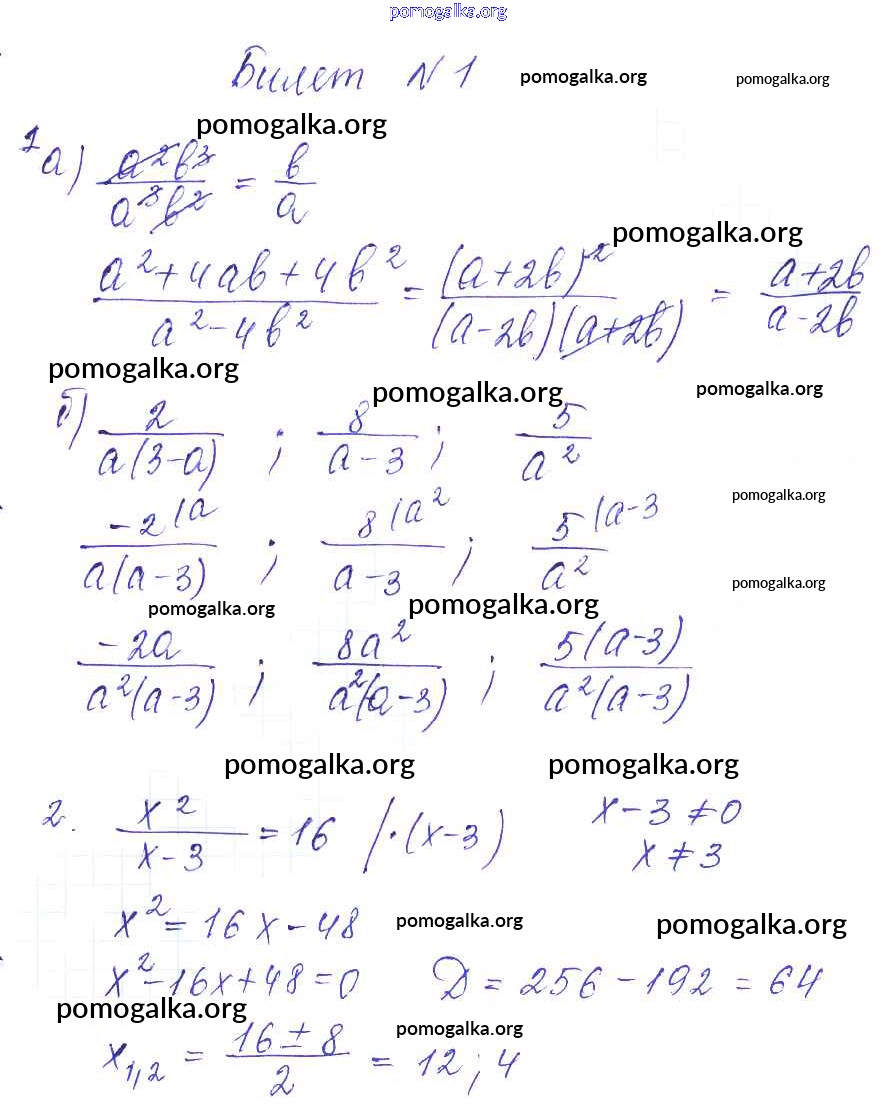 pomogalka.org
Билет N 1 pomogalka.org pomogalka.org
pomogalka.org
1 а) a²b³/a³b² = b/a
pomogalka.org
(a²+4ab+4b²)/(a²-4b²) = (a+2b)²/((a-2b)(a+2b)) = (a+2b)/(a-2b)
pomogalka.org pomogalka.org pomogalka.org
б) 2/(a(3-a)) ; 8/(a-3) ; 5/a²
pomogalka.org
-2/(a(a-3)) |a ; 8/(a-3) |a² ; 5/a² |a-3
pomogalka.org
pomogalka.org pomogalka.org
-2a/(a²(a-3)) ; 8a²/(a²(a-3)) ; 5(a-3)/(a²(a-3))
pomogalka.org pomogalka.org
2. x²/(x-3) = 16 /·(x-3) x-3≠0
x≠3
x² = 16x-48 pomogalka.org pomogalka.org
x²-16x+48=0 D = 256-192 = 64
pomogalka.org pomogalka.org
x1,2 = (16±8)/2 = 12; 4